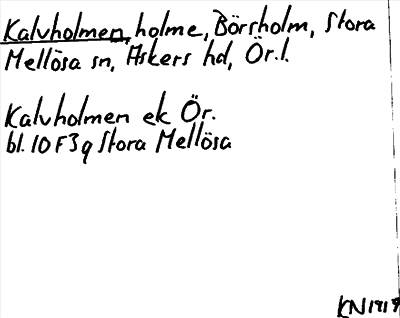 Kalvholmen, holme, Börsholm, Stora
Mellösa sn, Askers hd, Ör.l.
Kalvholmen ek Ör.
bl. 10 F 3 g Stora Mellösa